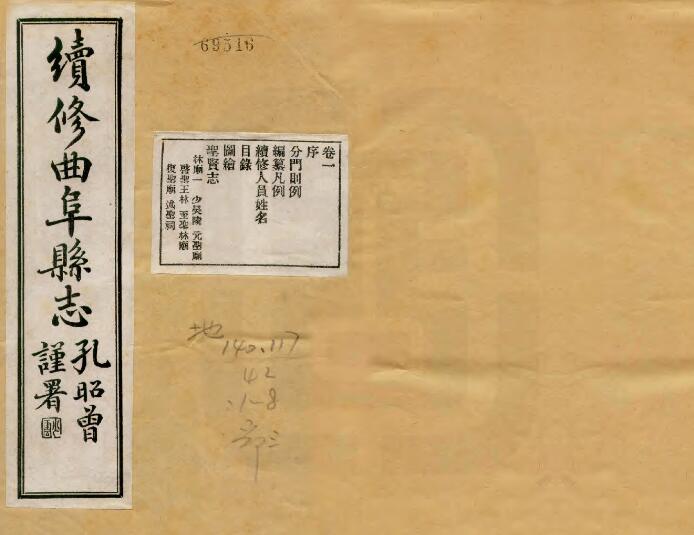 續修曲阜縣志
孔昭曾
謹署
69516
卷一
序
分門則例
編纂凡例
續修人員姓名
目錄
圖繪
聖賢志
林廟一 少昊陵 元聖廟
啓聖王林 至聖林廟
復聖廟 述聖祠
地
140.117
42
:1-8
部三